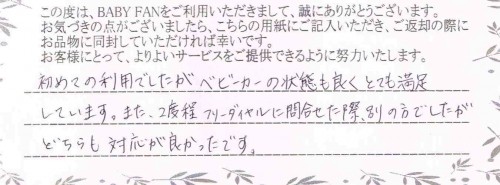 この度は、BABY FANをご利用いただきまして、誠にありがとうございます。
お気づきの点がございましたら、こちらの用紙にご記入いただき、ご返却の際に
お品物に同封していただければ幸いです。
お客様にとって、よりよいサービスをご提供できるように努力いたします。
初めての利用でしたがベビーカーの状態も良くとても満足
しています。また、2度程フリーダイヤルに問合せた際、別の方でしたが
どちらも対応が良かったです。